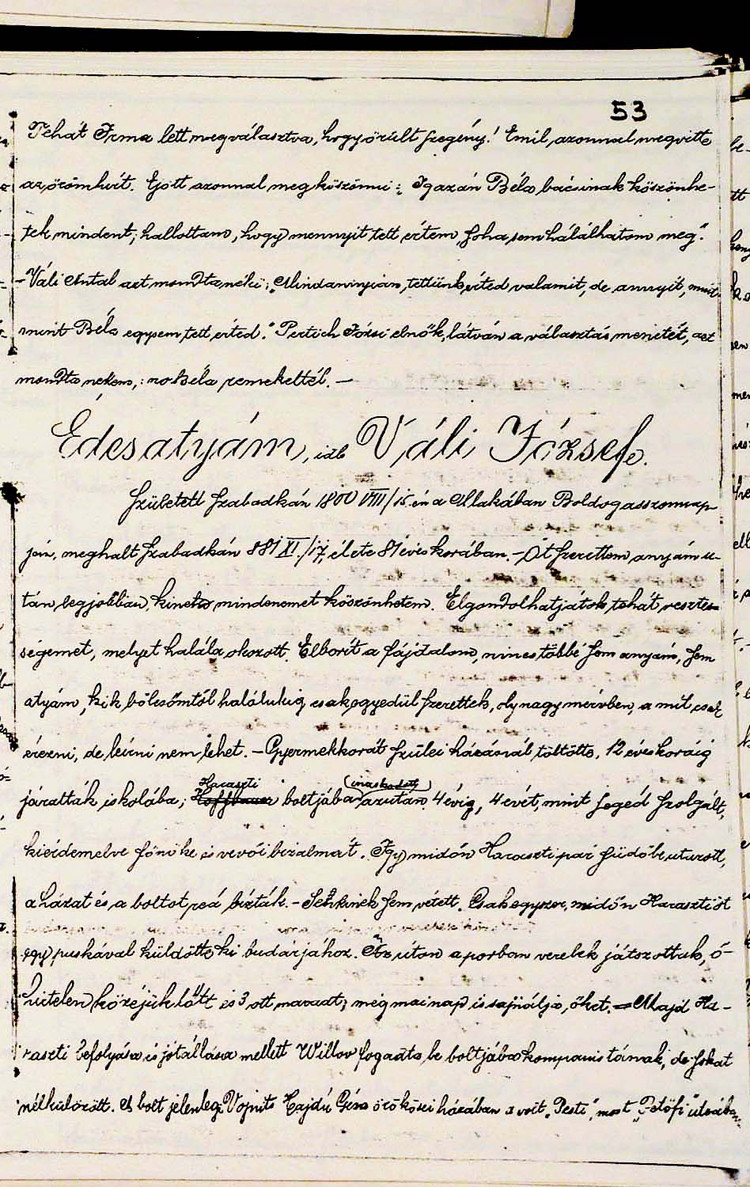 53
Tehát Irma lett megválasztva, hogy örült szegény! Emil, azonnal megvitte
az örömhírt. Ejött azonnal megköszönni: Igazán Béla bácsinak köszönhe-
tek mindent; hallottam, hogy mennyit tett értem, soha sem hálálhatom meg".
- Váli Antal azt mondta néki; „Mindannyian, tettünk érted valamit, de annyit,
mint Béla egy sem tett érted." Pertich Józsi elnök, látván a választás menetét, azt
mondta nekem,: no Béla remekeltél. —
Édesatyám, idb Váli József.
Született Szabadkán 1800 VIII/15.én a Makában Boldogasszony nap-
ján, meghalt Szabadkán 881 XI./17, élete 81 éves korában. - Őt szerettem anyám u-
tán, legjobban, kinek mindenemet köszönhetem. Elgondolhatjátok tehát vesztes-
ségemet, melyet halála okozott. Elborít a fájdalom, nincs többé sem anyám, sem
atyám, kik bölcsőmtől halálukig csakogyedül szerettek, oly nagy mérvben, a mit csak
érezni, de leírni nem lehet. - Gyermekkorát szülei házánál töltötte, 12 éves koráig
járatták iskolába; Haraszti boltjába (inaskodott) azután 4 évig, 4 évet, mint segéd szolgált,
kiérdemelve főnöke és vevői bizalmát. Így midőn Haraszti pár füdőbe utazott,
a házat és a boltot reá bízták. - Senkinek sem vétett. Csak egyszer, midőn Haraszti őt
egy puskával küldötte ki budárjához. Az úton a porban verebek játszottak, ő
hirtelen közéjük lőtt és 3 ott maradt; még mai nap is sajnálja, őket. = Majd Ha-
raszti befolyása és jótállása mellett Willov fogadta be boltjába kompanistának, de sokat
nélkülözött. A bolt jelenlegi Vojnits Hajdú Géza örökösei házában volt „Pesti", most „Petőfi" utcában